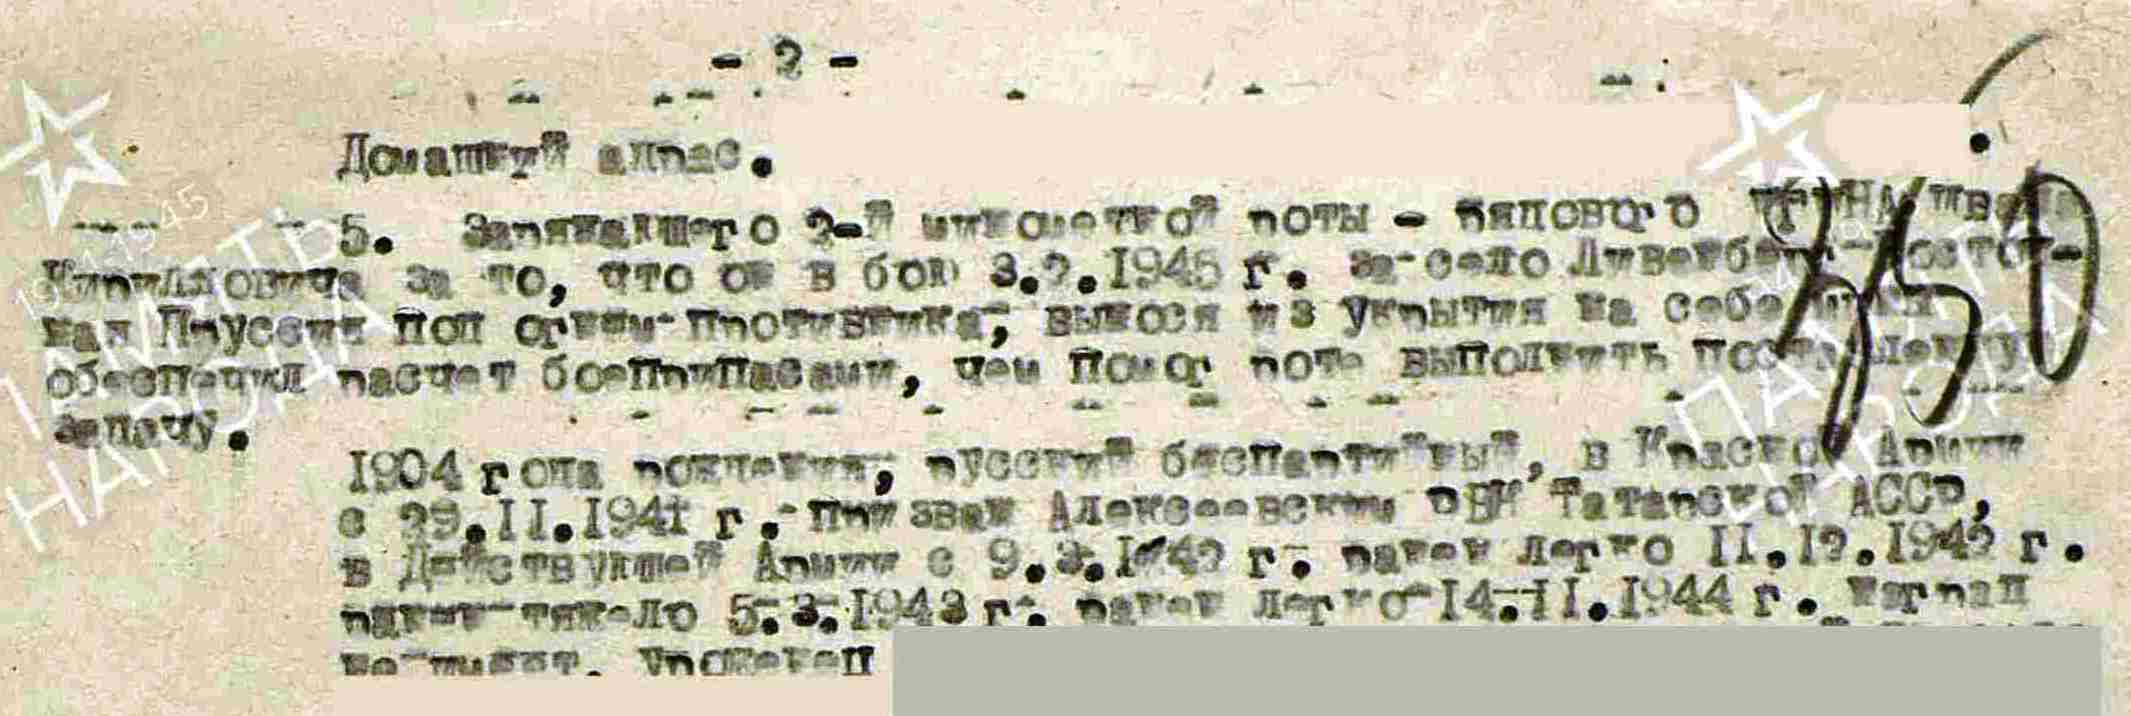 - 2 -
Домашний адрес.
5. Заряжающего 2-й минометной роты - рядового Ивана
Кирилловича за то, что он в бою 3.2.1945 г. за село Восточ-
ная Пруссия под огнем противника, вынося из укрытия на себе мины
обеспечил расчет боеприпасами, чем помог роте выполнить поставленную
задачу.
1904 года рождения, русский беспартийный, в Красной Армии
с 29.II.1941 г. призван Алексеевским РВК Татарской АССР,
в Действующей Армии с 9.3.1942 г. ранен легко II.12.1942 г.
ранен тяжело 5.3.1943 г. ранен легко 14.II.1944 г. наград
не имеет. Уроженец
350
ПАМЯТЬ
НАРОДА
ПАМЯТЬ
НАРОДА